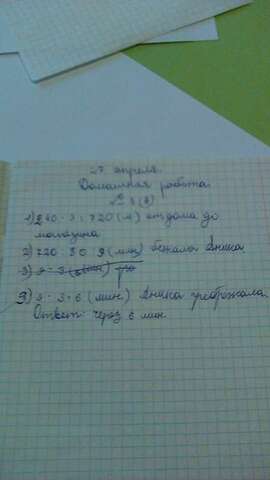 27 апреля.
Домашняя работа.
№ 3 (8)
1) 240 · 3 = 720 (м) от дома до
магазина
2) 720 : 80 = 9 (мин) бежала Аника
3) 9 - 3
3) 9 - 3 = 6 (мин) Аника
Ответ: через 6 мин